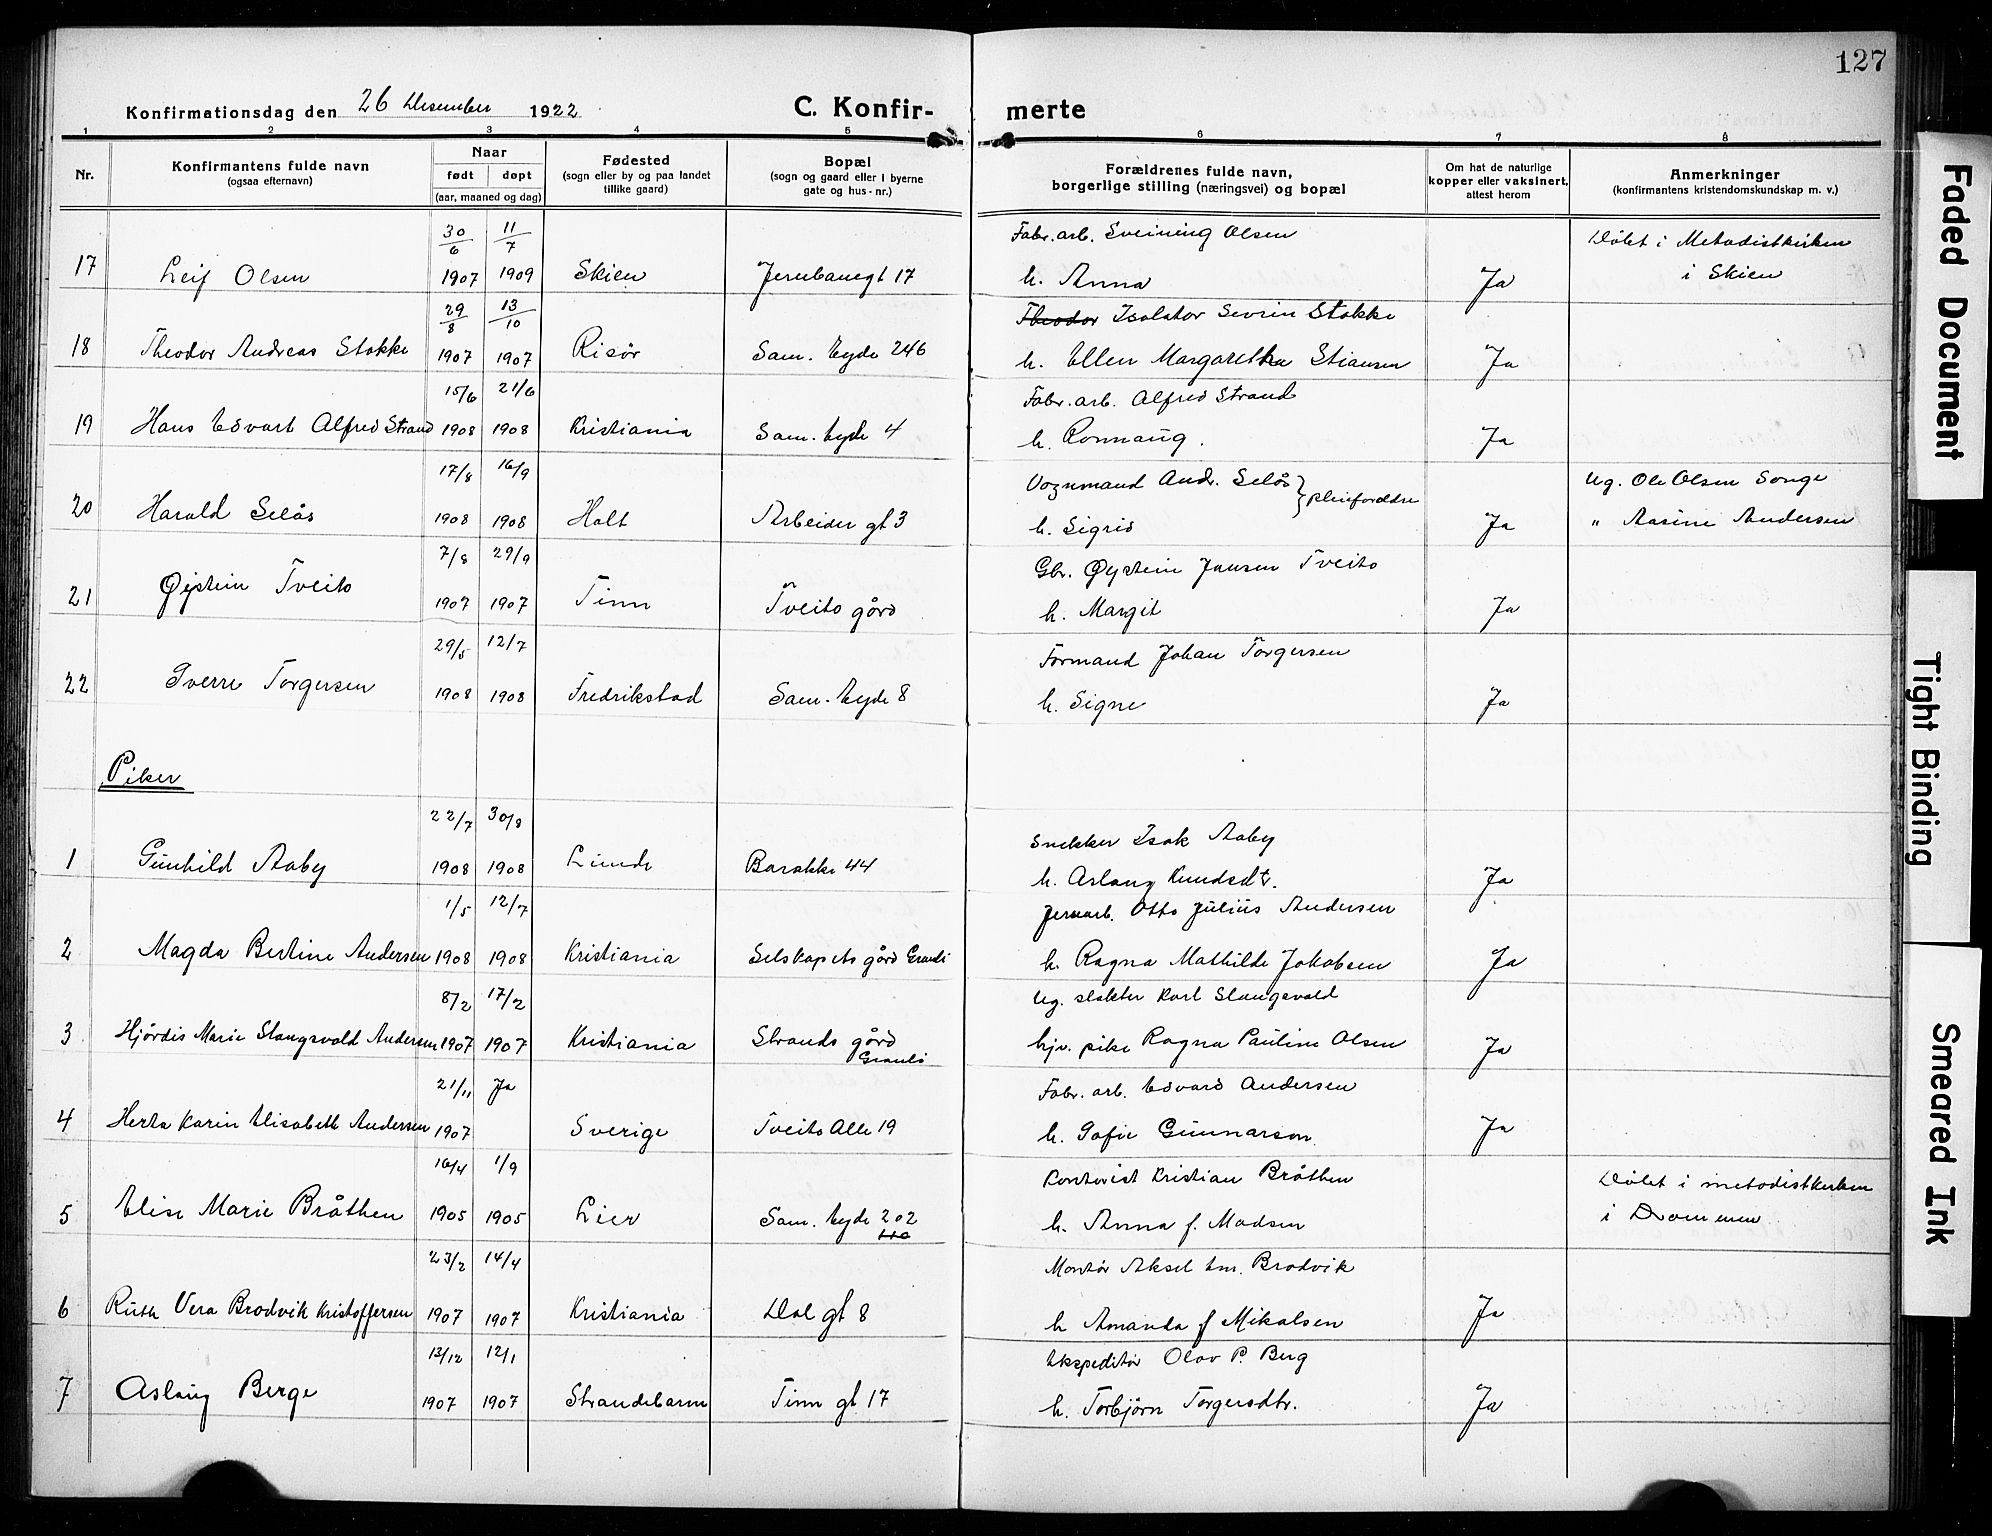 127
Konfirmationsdag den 26 Desember 1922
C. Konfir-
merte
1 2 3 4 5 6 7 8
Nr.
Konfirmantens fulde navn
(ogsaa efternavn)
Naar
født døpt
(aar, maaned og dag)
Fødested
(sogn eller by og paa landet
tillike gaard)
Bopæl
(sogn og gaard eller i byerne
gate og hus-nr.)
Forældrenes fulde navn,
borgerlige stilling (næringsvei) og bopæl
Om hat de naturlige
kopper eller vaksinert,
attest herom
Anmerkninger
(konfirmantens kristendomskundskap m. v.)
30/6 11/7 Fabr. arb. Sveining Olsen Døbt i Metodistkirken
17 Leif Olsen 1907 1909 Skien Jernbanegt 17 h. Anna Ja i Skien
29/8 13/10 Theodor Isolatør Sevrin Stokke
18 Theodor Andreas Stokke 1907 1907 Risør Sam. Eyde 246 h. Ellen Margaretha Stiansen Ja
15/6 21/6 Fabr. arb. Alfred Strand
19 Hans Edvart Alfred Strand 1908 1908 Kristiania Sam. Eyde 4 h. Ronnaug. Ja
17/8 16/9 Vognmand Andr. Selås } pleieforældre Ug. Ole Olsen Songe
20 Harald Selås 1908 1908 Holt Arbeider gt 3 h. Sigrid Ja " Aasine Andersen
7/8 29/9 Gbr. Øystein Jansen Tveito
21 Øystein Tveito 1907 1907 Tinn Tveito gård h. Margit Ja
29/5 12/7 Formand Johan Torgersen
22 Sverre Torgersen 1908 1908 Fredrikstad Sam. Eyde 8 h. Signe Ja
Piker
22/7 30/8 Snekker Isak Aaby
1 Gunhild Aaby 1908 1908 Lunde Barakke 44 h. Aslaug Knudsdtr. Ja
1/5 12/7 Jernarb. Otto Julius Andersen
2 Magda Bertine Andersen 1908 1908 Kristiania Selskapets gård Grauli h. Ragna Mathilde Jakobsen Ja
8/2 17/2 Ug. slakter Karl Slangsvold
3 Hjördis Marie Slangsvold Andersen 1907 1907 Kristiania Strands gård hjv. pike Ragna Pauline Olsen Ja
Grauli
21/11 Ja Fabr. arb. Edvard Andersen
4 Herta Karin Elisabeth Andersen 1907 Sverige Tveito Alle 19 h. Sofie Gunnarson Ja
16/4 1/9 Kontorist Kristian Bråthen Døbt i metodistkirken
5 Elise Marie Bråthen 1905 1905 Lier Sam. Eyde 202 h. Anna f. Madsen i Drammen
23/2 14/4 Montør Aksel Em. Brodvik
6 Ruth Vera Brodvik Kristoffersen 1907 1907 Kristiania Dal gt 8 h Amanda f Mikalsen Ja
13/12 12/1 Ekspeditør Olav P. Berg
7 Aslaug Berge 1907 1907 Strandebarm Tinn gt 17 h. Torbjörn Torgersdtr. Ja
Faded Document
Tight Binding
Smeared Ink